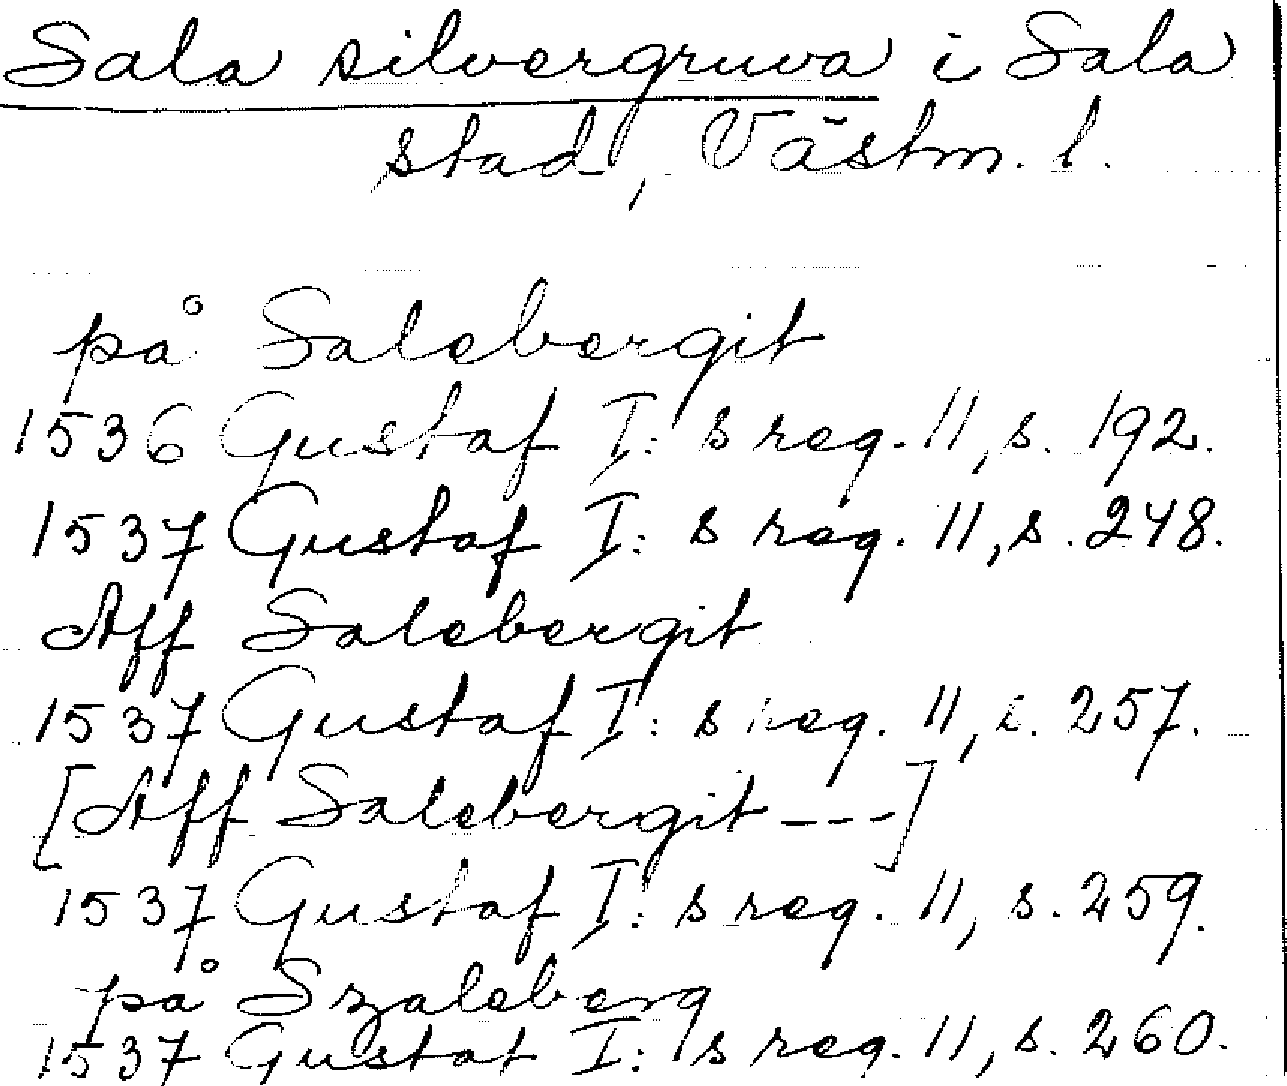 Sala silvergruva i Sala
stad, Västm. l.
på Salebergit
1536 Gustaf I: s reg. 11, s. 192.
1537 Gustaf I: s reg. 11, s. 248.
Aff Salebergit
1537 Gustaf I: s reg. 11, s. 257.
[Aff Salebergit ---]
1537 Gustaf I: s reg. 11, s. 259.
på Szaleberg
1537 Gustaf I: s reg. 11, s. 260.